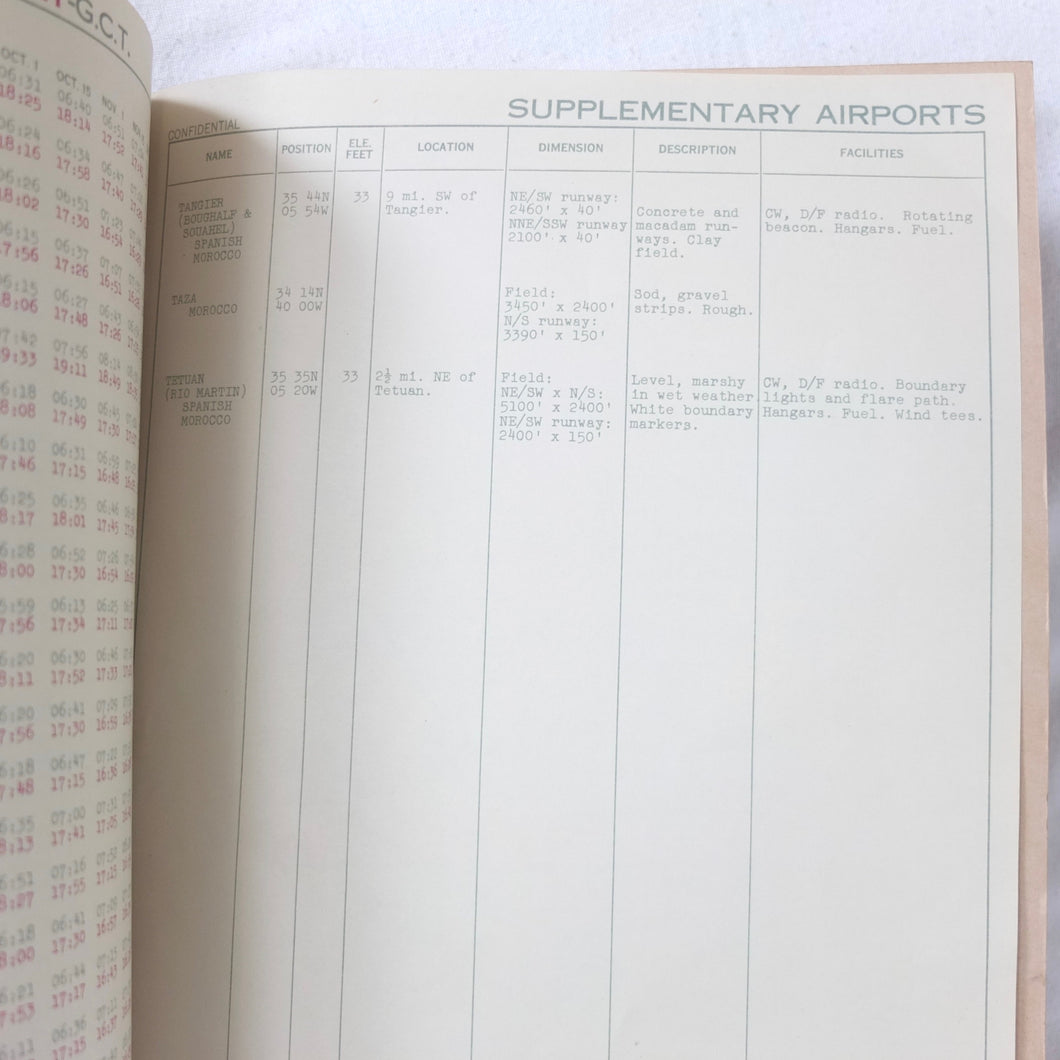 -G.C.T.
OCT. 1 OCT. 15 NOV. 1
06:31 06:40 06:51
18:25 18:14 17:52
06:24 06:34 06:47
18:16 17:58 17:40
06:26 06:51 07:23
18:02 17:30 16:54
06:15 06:37 07:07
17:56 17:26 16:51
06:15 06:27 06:43
18:06 17:48 17:26
07:42 07:56 08:14
19:33 19:11 18:49
06:18 06:30 06:45
18:08 17:49 17:30
06:10 06:31 06:59
17:46 17:15 16:48
06:25 06:35 06:46
18:17 18:01 17:45
06:28 06:52 07:26
18:00 17:30 16:54
5:59 06:13 06:25
7:56 17:34 17:11
6:20 06:30 06:46
8:11 17:52 17:33
6:20 06:41 07:09
7:56 17:30 16:59
6:18 06:47 07:22
7:48 17:15 16:36
6:35 07:00 07:31
8:13 17:41 17:05
6:51 07:16 07:52
8:27 17:55 17:15
6:18 06:41 07:09
8:00 17:30 16:57
6:21 06:44 07:15
7:53 17:17 16:43
6:11 06:36 07:11
17:51 16:37
CONFIDENTIAL
SUPPLEMENTARY AIRPORTS
NAME POSITION ELE. FEET LOCATION DIMENSION DESCRIPTION FACILITIES
TANGIER 35 44N 33 9 mi. SW of NE/SW runway:
(BOUGHALF & 05 54W Tangier. 2460' x 40' Concrete and CW, D/F radio. Rotating
SOUAHEL) NNE/SSW runway macadam run- beacon. Hangars. Fuel.
SPANISH 2100' x 40' ways. Clay
MOROCCO field.
TAZA 34 14N Field: Sod, gravel
MOROCCO 40 00W 3450' x 2400' strips. Rough.
N/S runway:
3390' x 150'
TETUAN 35 35N 33 2½ mi. NE of Field: Level, marshy CW, D/F radio. Boundary
(RIO MARTIN) 05 20W Tetuan. NE/SW x N/S: in wet weather. lights and flare path.
SPANISH 5100' x 2400' White boundary Hangars. Fuel. Wind tees.
MOROCCO NE/SW runway: markers.
2400' x 150'